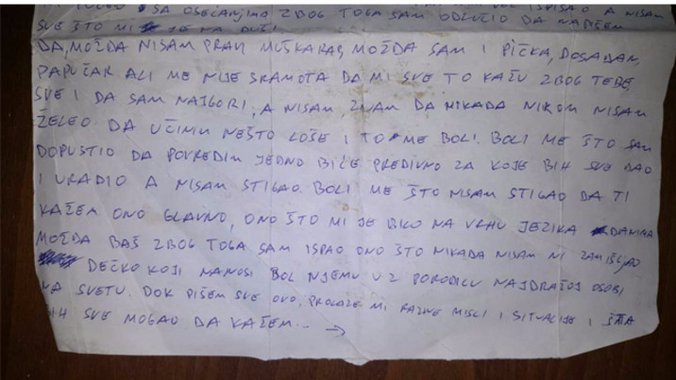 SA OSEĆANJIMA ZBOG TOGA SAM ODLUČIO DA NAPIŠEM
SVE ŠTO MI JE NA DUŠI
DA, MOŽDA NISAM PRAVI MUŠKARAC, MOŽDA SAM I PIČKA, DOSADAN,
PAPUČAR ALI ME NIJE SRAMOTA DA MI SVE TO KAŽU ZBOG TEBE,
SVE I DA SAM NAJGORI, A NISAM, ZNAM DA NIKADA NIKOM NISAM
ŽELEO DA UČINIM NEŠTO LOŠE I TO ME BOLI. BOLI ME ŠTO SAM
DOPUSTIO DA POVREDIM JEDNO BIĆE PREDIVNO ZA KOJE BIH SVE DAO
I URADIO A NISAM STIGAO. BOLI ME ŠTO NISAM STIGAO DA TI
KAŽEM ONO GLAVNO, ONO ŠTO MI JE BILO NA VRHU JEZIKA DANIMA
MOŽDA BAŠ ZBOG TOGA SAM ISPAO ONO ŠTO NIKADA NISAM NI ZAMIŠLJAO
DEČKO KOJI NANOSI BOL NJEMU UZ PORODICU NAJDRAŽOJ OSOBI
NA SVETU. DOK PIŠEM SVE OVO, PROLAZE MI RAZNE MISLI I SITUACIJE I ŠTA
BIH SVE MOGAO DA KAŽEM... →